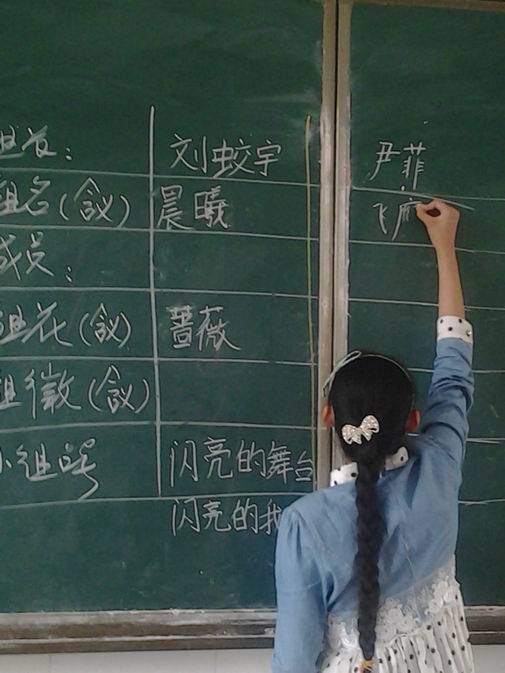 组长： 刘蛟宇 尹菲
组名（含议） 晨曦 飞
成员：
组花（含议） 蔷薇
组徽（含议）
小组号 闪亮的舞台
闪亮的我